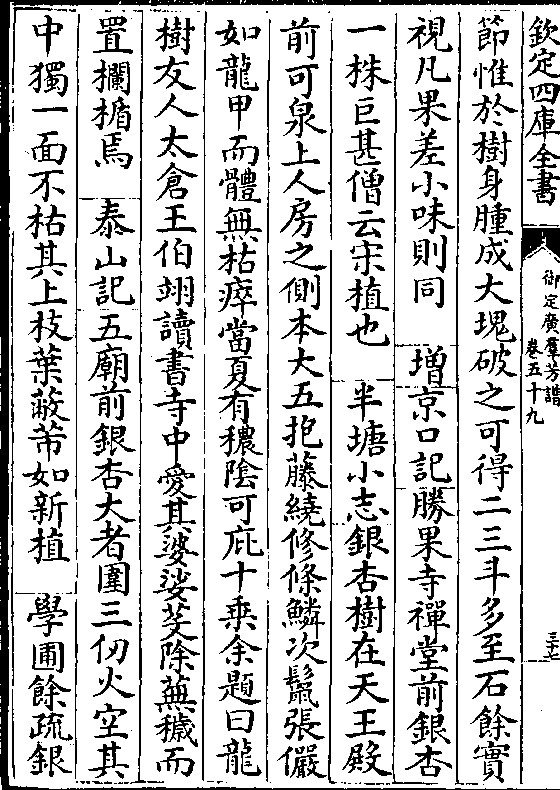 欽定四庫全書
御定廣羣芳譜
卷五十九
三十七
節惟於樹身腫成大塊破之可得二三斗多至石餘實
視凡果差小味則同　增京口記勝果寺禪堂前銀杏
一株巨甚僧云宋植也　半塘小志銀杏樹在天王殿
前可泉上人房之側本大五抱藤繞修條鱗次鬛張儼
如龍甲而體無枯瘁當夏有穠陰可庇十乘余題曰龍
樹友人太倉王伯翊讀書寺中愛其婆娑芟除蕪穢而
置欄楯焉　泰山記五廟前銀杏大者圍三仞火空其
中獨一面不枯其上枝葉蔽芾如新植　學圃餘疏銀